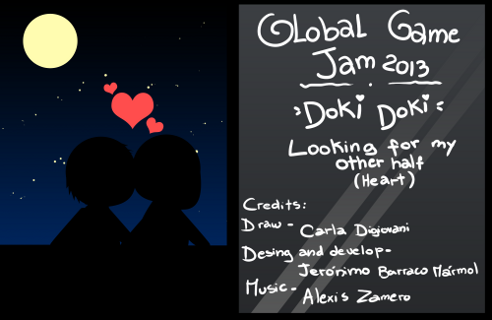 Global Game
Jam 2013
Doki Doki
Looking for my
other half
(Heart)
Credits:
Draw - Carla Diojovani
Desing and develop-
Jerónimo Barraco Mármol
Music - Alexis Zamero